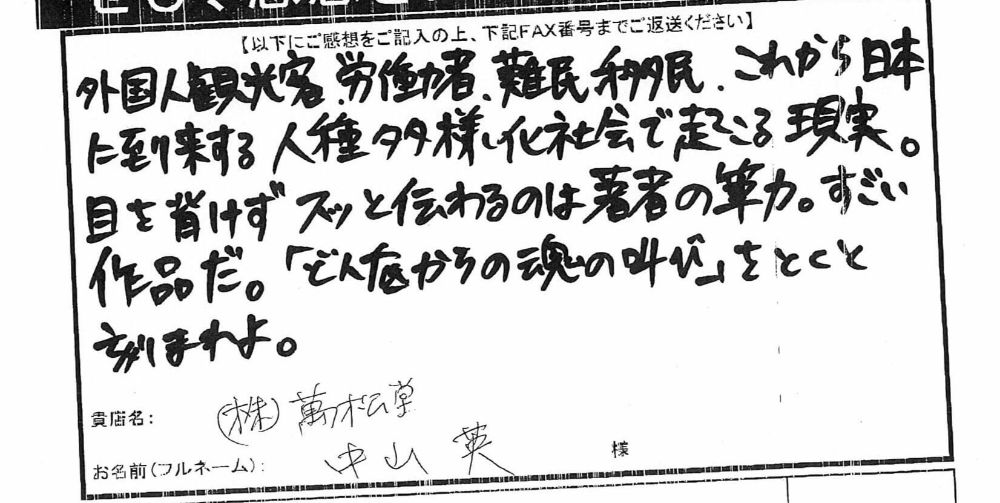 【以下にご感想をご記入の上、下記FAX番号までご返送ください】
外国人観光客、労働者、難民、移民、これから日本
に到来する人種多様化社会で起こる現実。
目を背けずズッと伝わるのは著者の筆力。すごい
作品だ。「どん底からの魂の叫び」をとくと
刻まれよ。
貴店名: (株)萬松堂
お名前(フルネーム): 中山 英 様